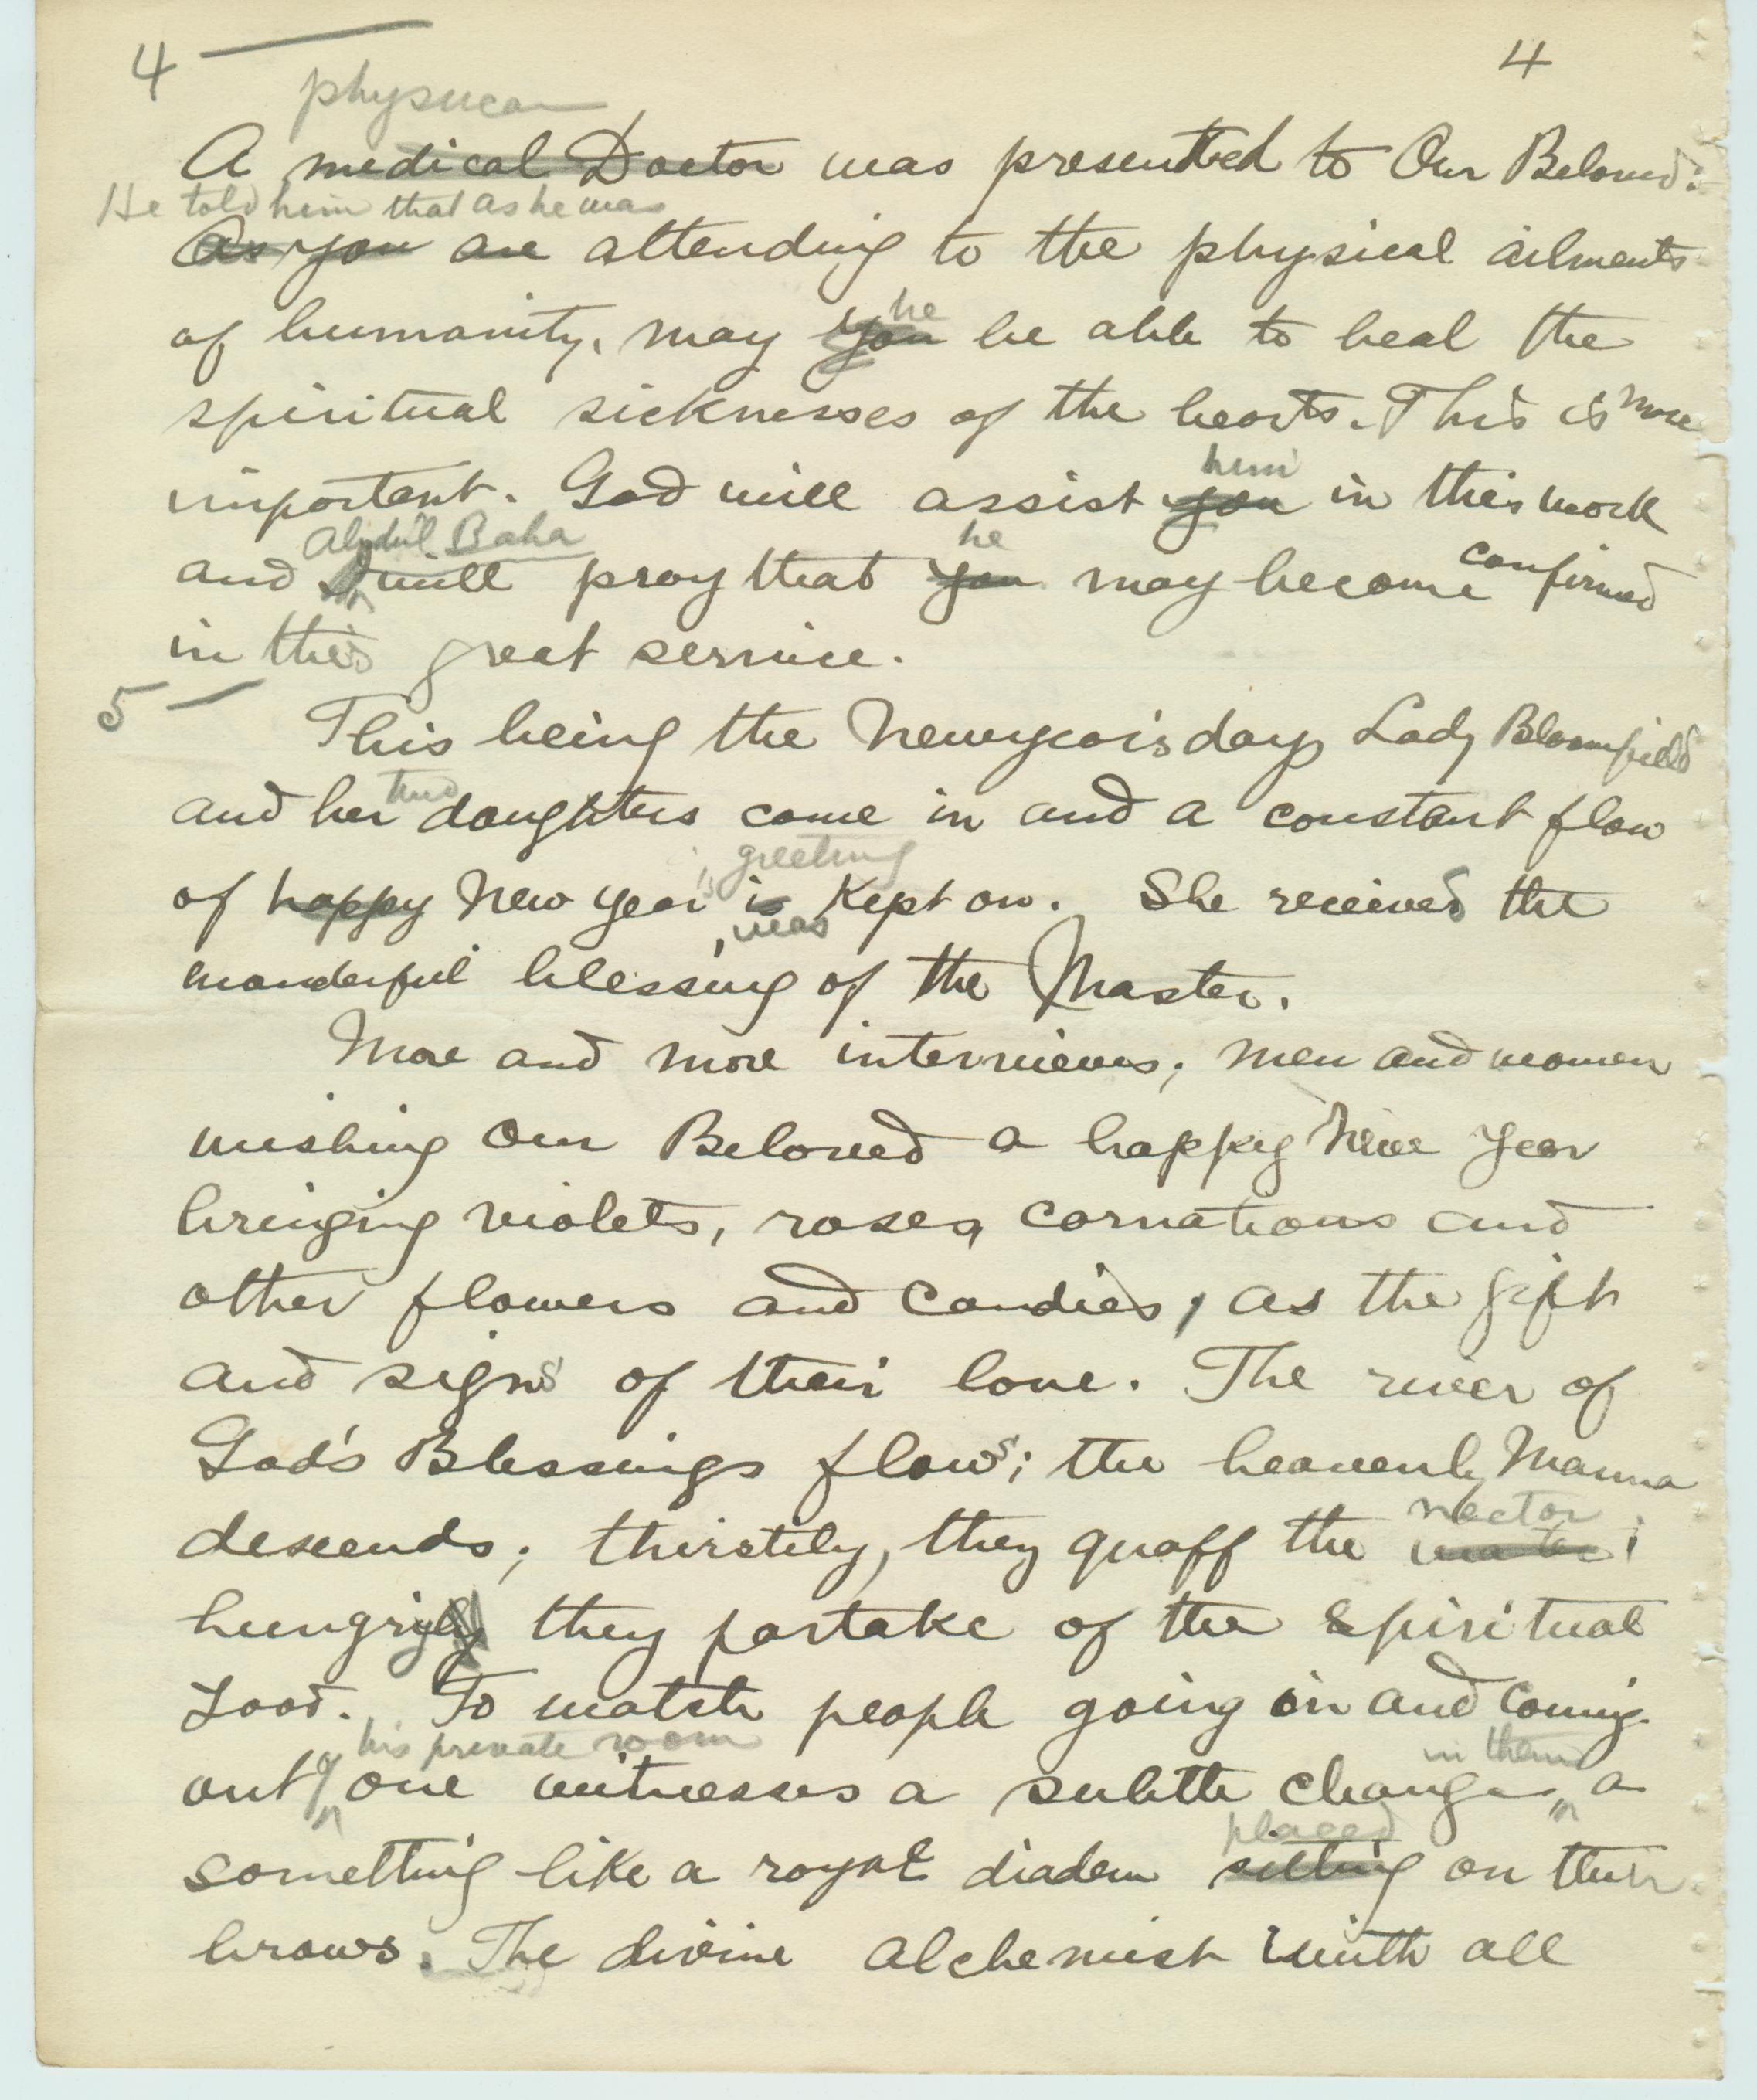 4 — 4
physician
A medical Doctor was presented to Our Beloved:
He told him that as he was
As you are attending to the physical ailments
he
of humanity, may you be able to heal the
spiritual sicknesses of the hearts. This is more
him
important. God will assist you in this work
Abdul Baha he
and I will pray that you may become confirmed
in this great service.
5 —
This being the Newyear's day Lady Bloomfield
two
and her daughters come in and a constant flow
greeting
of happy New Year's is Kept on. She received the
was
wonderful blessing of the Master.
More and more interviews; men and women
wishing Our Beloved a happy New Year
bringing violets, roses, carnations and
other flowers and candies, as the gift
and signs of their love. The river of
God's Blessings flows; the heavenly Manna
nectar
descends; thirstily, they quaff the water;
hungrily they partake of the spiritual
Food. To watch people going in and coming
his private room in them
out of one witnesses a subtle change, a
placed
something like a royal diadem sitting on their
brows. The divine Alchemist with all